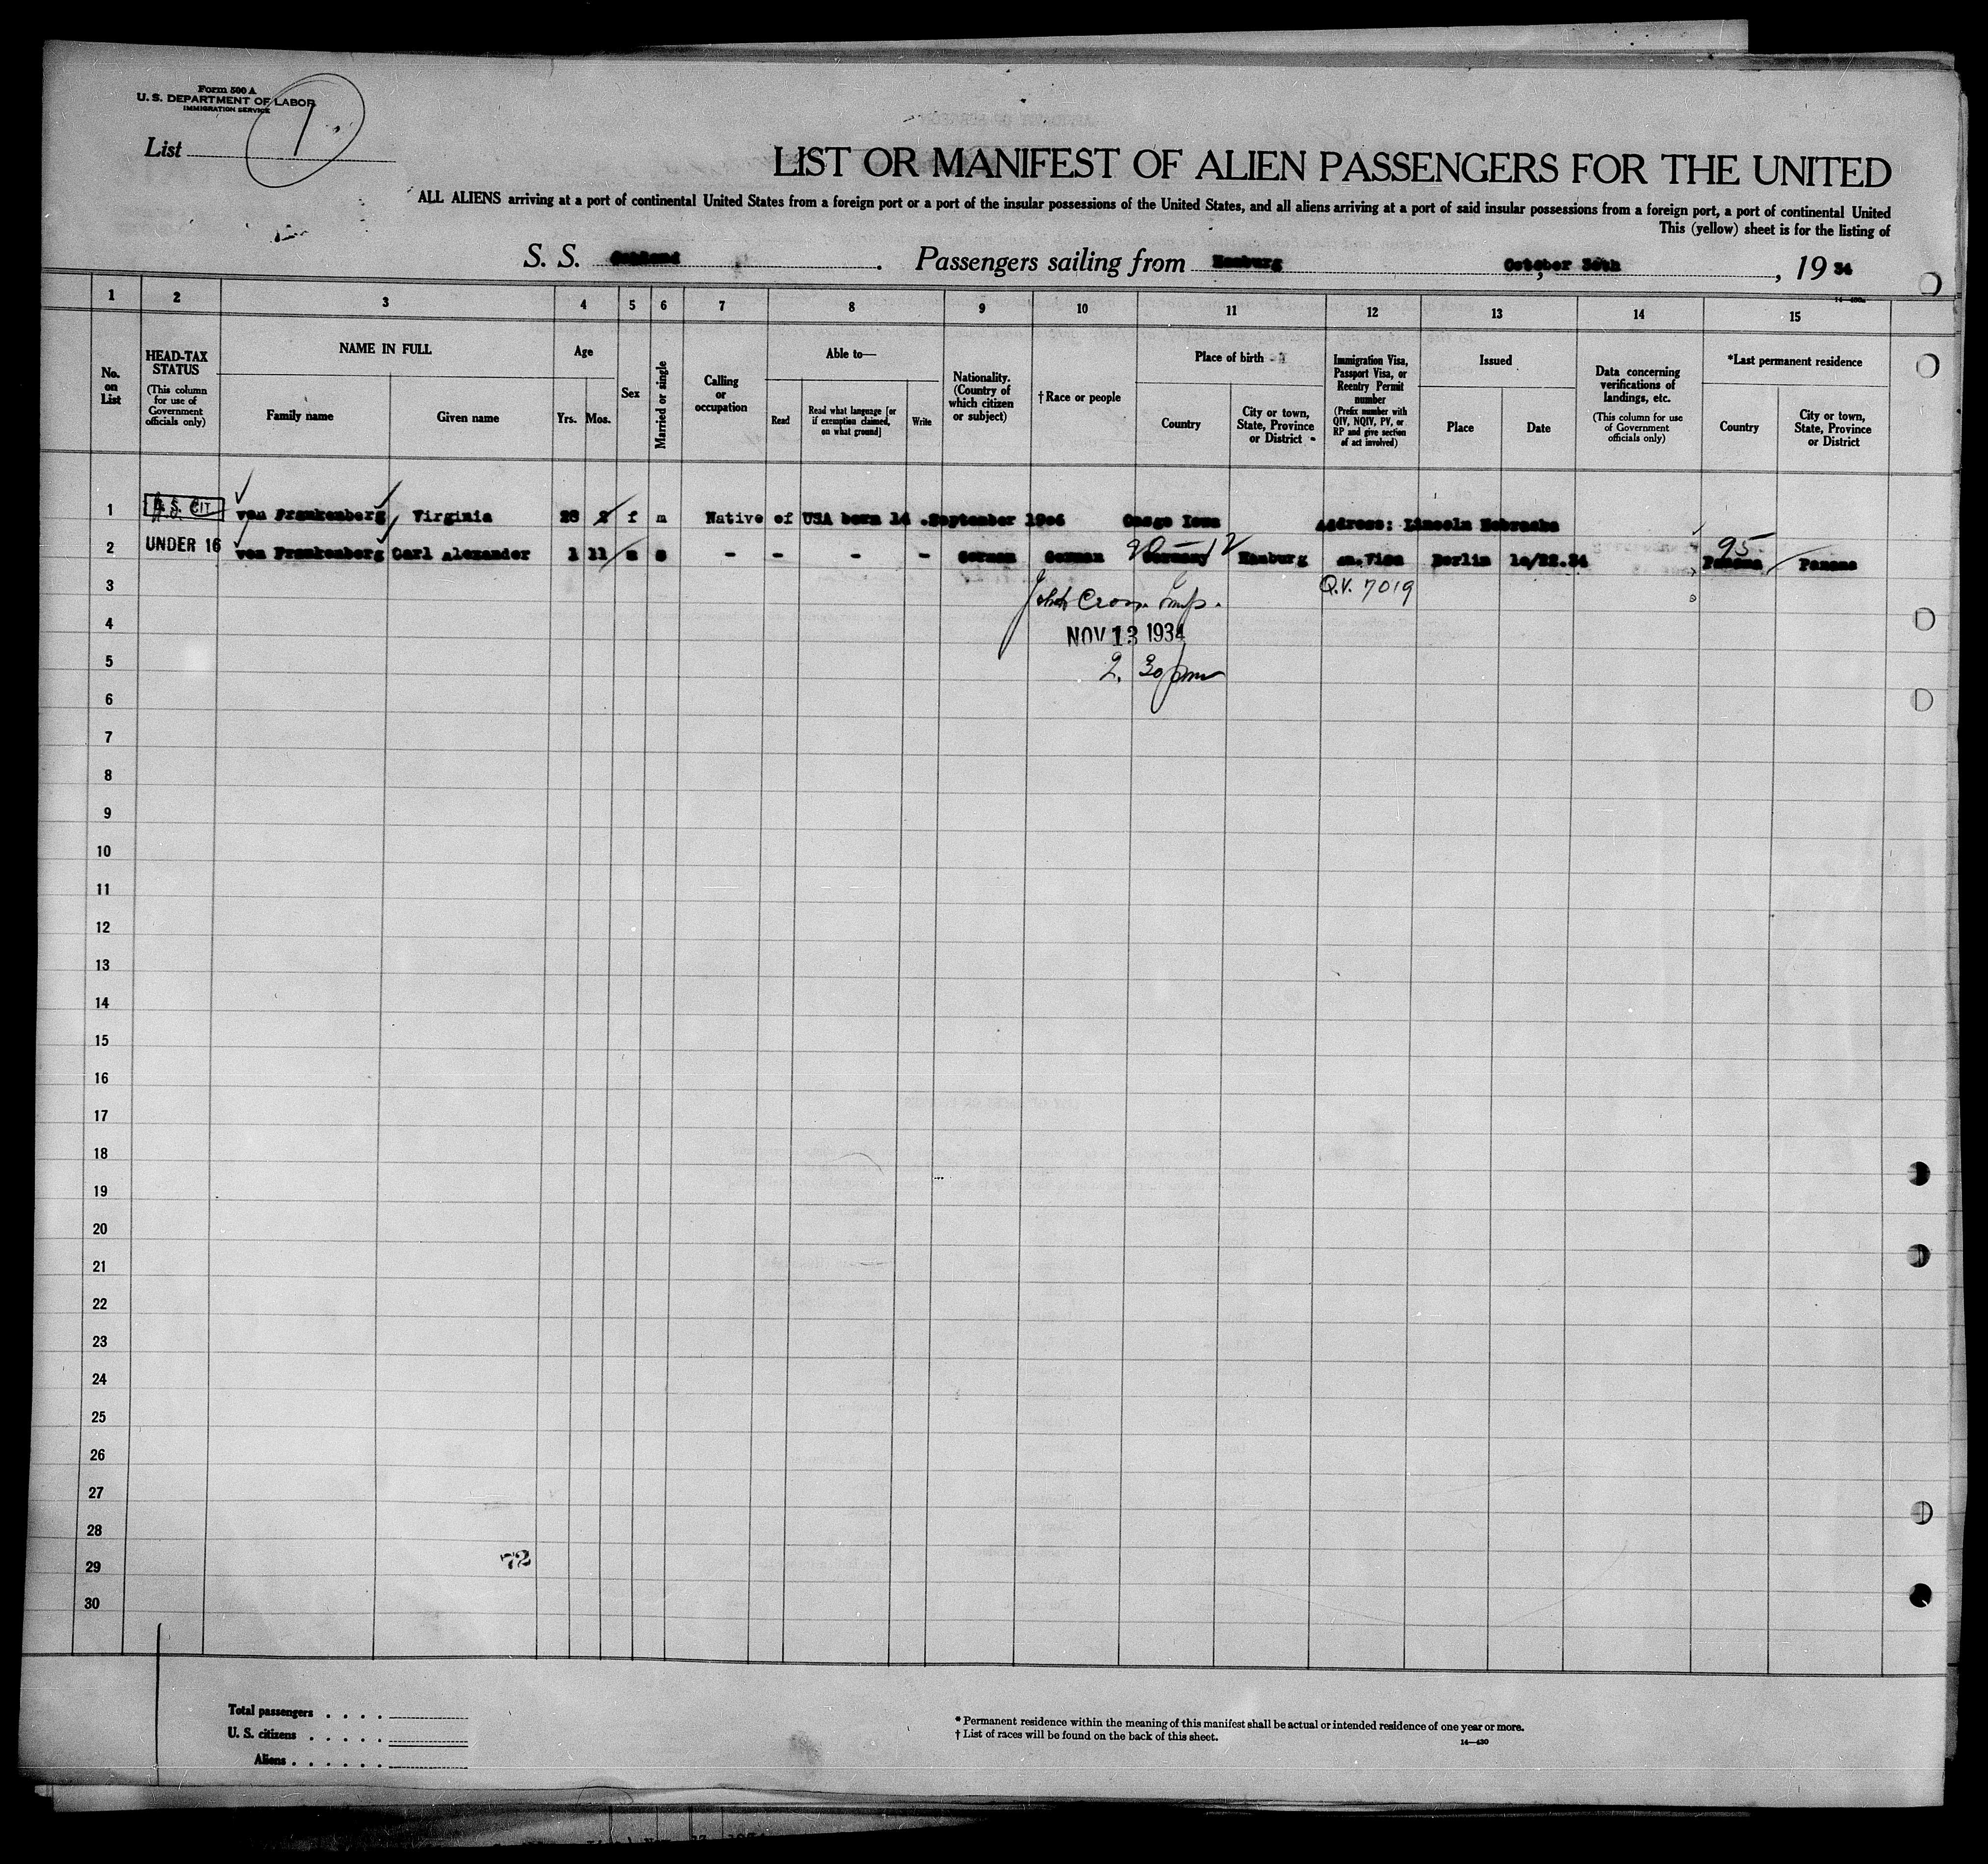 Form 500 A
U. S. DEPARTMENT OF LABOR
IMMIGRATION SERVICE
List 1
LIST OR MANIFEST OF ALIEN PASSENGERS FOR THE UNITED
ALL ALIENS arriving at a port of continental United States from a foreign port or a port of the insular possessions of the United States, and all aliens arriving at a port of said insular possessions from a foreign port, a port of continental United
This (yellow) sheet is for the listing of
S. S. . Passengers sailing from Hamburg October 30th , 19 34
14—430a
1 2 3 4 5 6 7 8 9 10 11 12 13 14 15
No. on List
HEAD-TAX STATUS
(This column for use of Government officials only)
NAME IN FULL
Family name
Given name
Age
Yrs.
Mos.
Sex
Married or single
Calling or occupation
Able to—
Read
Read what language [or if exemption claimed, on what ground]
Write
Nationality. (Country of which citizen or subject)
† Race or people
Place of birth
Country
City or town, State, Province or District
Immigration Visa, Passport Visa, or Reentry Permit number
(Prefix number with QIV, NQIV, PV, or RP and give section of act involved)
Issued
Place
Date
Data concerning verifications of landings, etc.
(This column for use of Government officials only)
*Last permanent residence
Country
City or town, State, Province or District
1 U. S. CIT von Frankenberg Virginia 28 2 f m Native of USA born 14 .September 1906 Osage Iowa Address: Lincoln Nebraska
20 - 12 95
2 UNDER 16 von Frankenberg Carl Alexander 1 11 m s - - - - German German Germany Hamburg Berlin 10/22.34 Panama Panama
3 Q.V. 7019
John Cross Insp.
4 NOV 13 1934
5 2.30 pm
6
7
8
9
10
11
12
13
14
15
16
17
18
19
20
21
22
23
24
25
26
27
28
72
29
30
Total passengers . . . .
U. S. citizens . . . . .
Aliens . . . . . .
* Permanent residence within the meaning of this manifest shall be actual or intended residence of one year or more.
† List of races will be found on the back of this sheet.
14—430